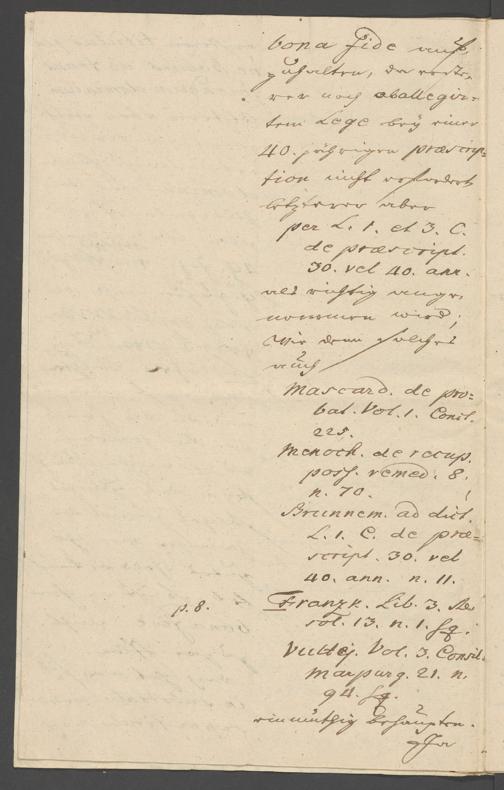 bona fide auff
zuhalten, da erste-
rer nach aballegir-
tem Lege bey einer
40. jährigen præscrip-
tion nicht erfordert
letzterer aber
per L. 1. et 3. C.
de præscript.
30. vel 40. ann.
als richtig ange-
nommen wird;
Wie denn solches
auch
Mascard. de pro-
bat. Vol. 1. Concl.
225.
Menoch. de recup.
poss. remed. 8.
n. 70.
Brunnem. ad dict.
L. 1. C. de præ-
script. 30. vel
40. ann. n. 11.
p. 8. Franzk. Lib. 3. Re
sol. 13. n. 1. sq.
Vultej. Vol. 3. Consil.
Marpurg. 21. n.
94. sq.
einmüthig behaupten.